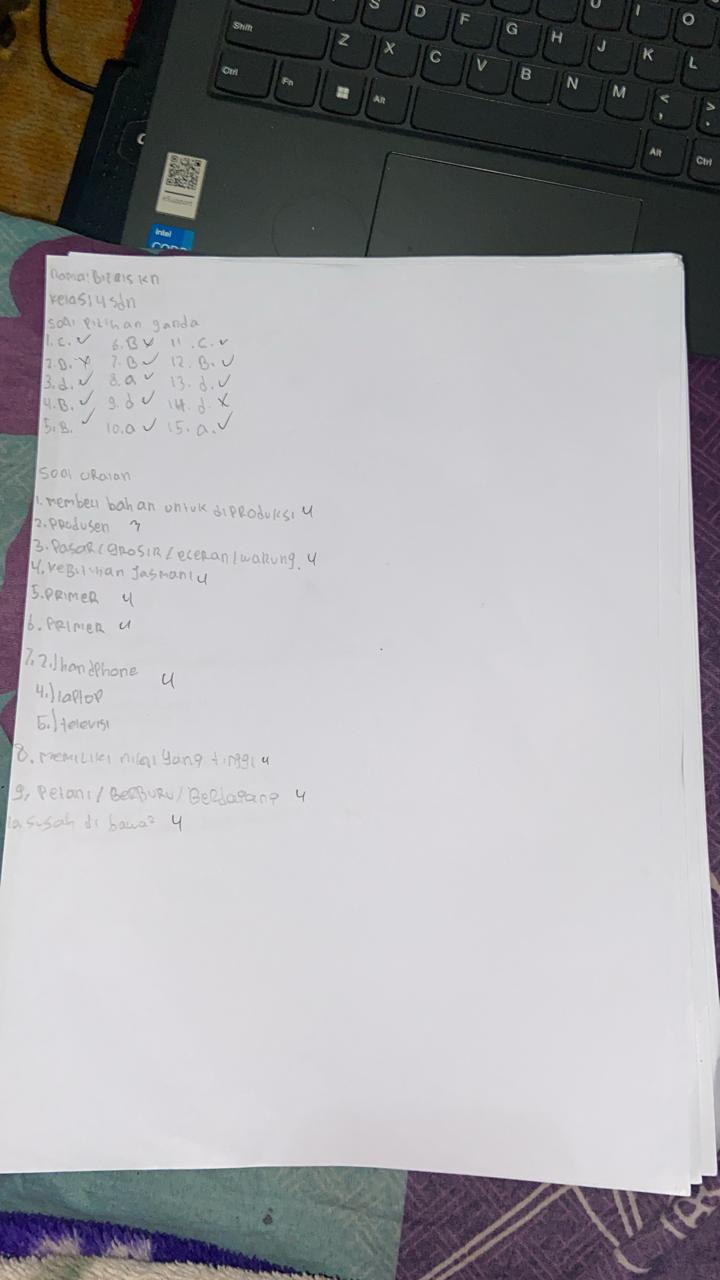 S D F G H J K L U I O
Shift Z X C V B N M < , > .
Ctrl Fn Alt Alt Ctrl
eSupport
intel
CORE
Nama:
Kelas: 4 sdn
soal pilihan ganda
1. C. ✓ 6. B ✓ 11. C. ✓
2. D. X 7. B ✓ 12. B. ✓
3. d. ✓ 8. a ✓ 13. d. ✓
4. B. ✓ 9. d ✓ 14. d. X
5. B. ✓ 10. a ✓ 15. a. ✓
Soal uraian
1. membeli bahan untuk diproduksi 4
2. produsen 3
3. Pasar/grosir/eceran/warung. 4
4. kebutuhan Jasmani 4
5. PRIMER 4
6. PRIMER 4
7. 2.) handphone 4
4.) laptop
5.) televisi
8. memiliki nilai yang tinggi 4
9. Petani/Berburu/Berdagang 4
10. susah di bawa² 4